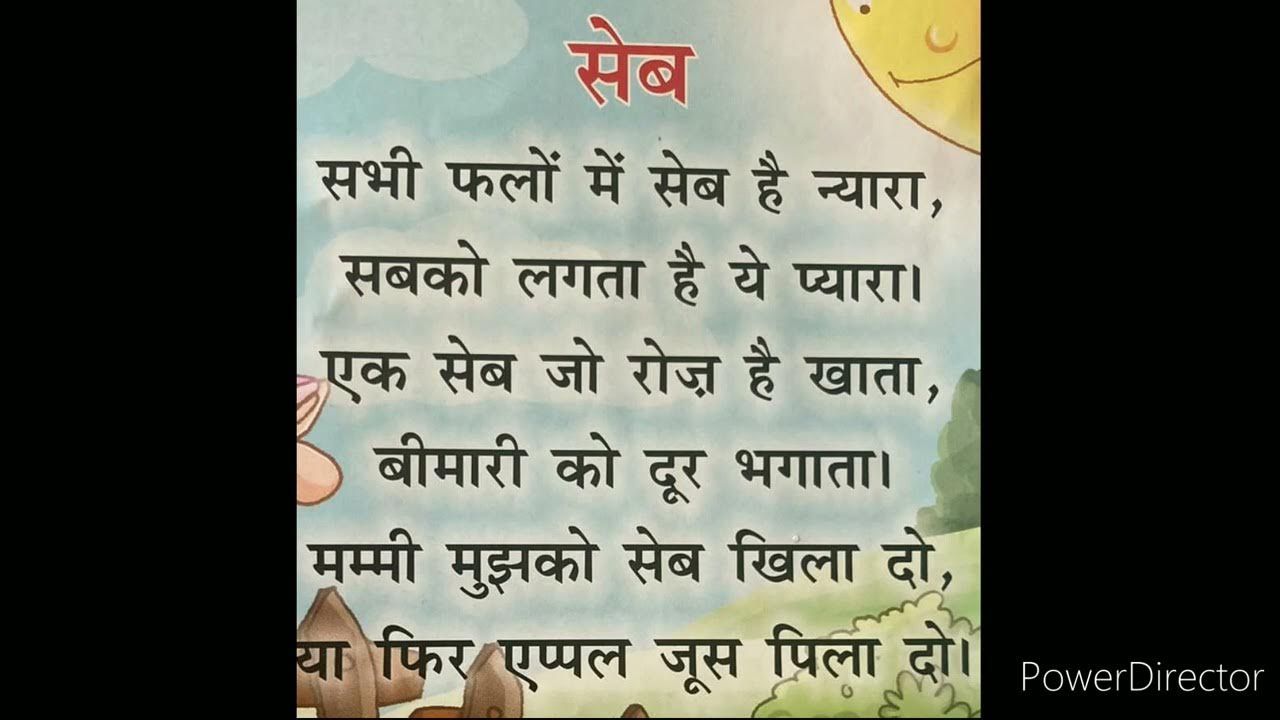 सेब
सभी फलों में सेब है न्यारा,
सबको लगता है ये प्यारा।
एक सेब जो रोज़ है खाता,
बीमारी को दूर भगाता।
मम्मी मुझको सेब खिला दो,
या फिर एप्पल जूस पिला दो।
PowerDirector